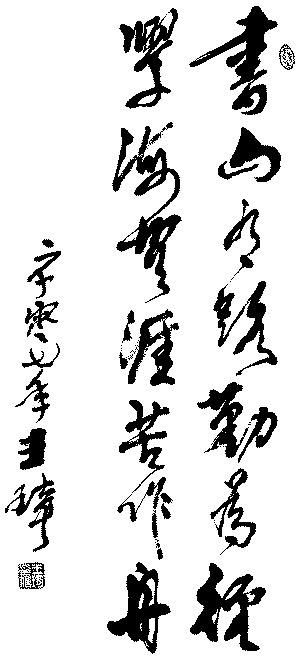 書山有路勤為徑
學海無涯苦作舟
零七年王